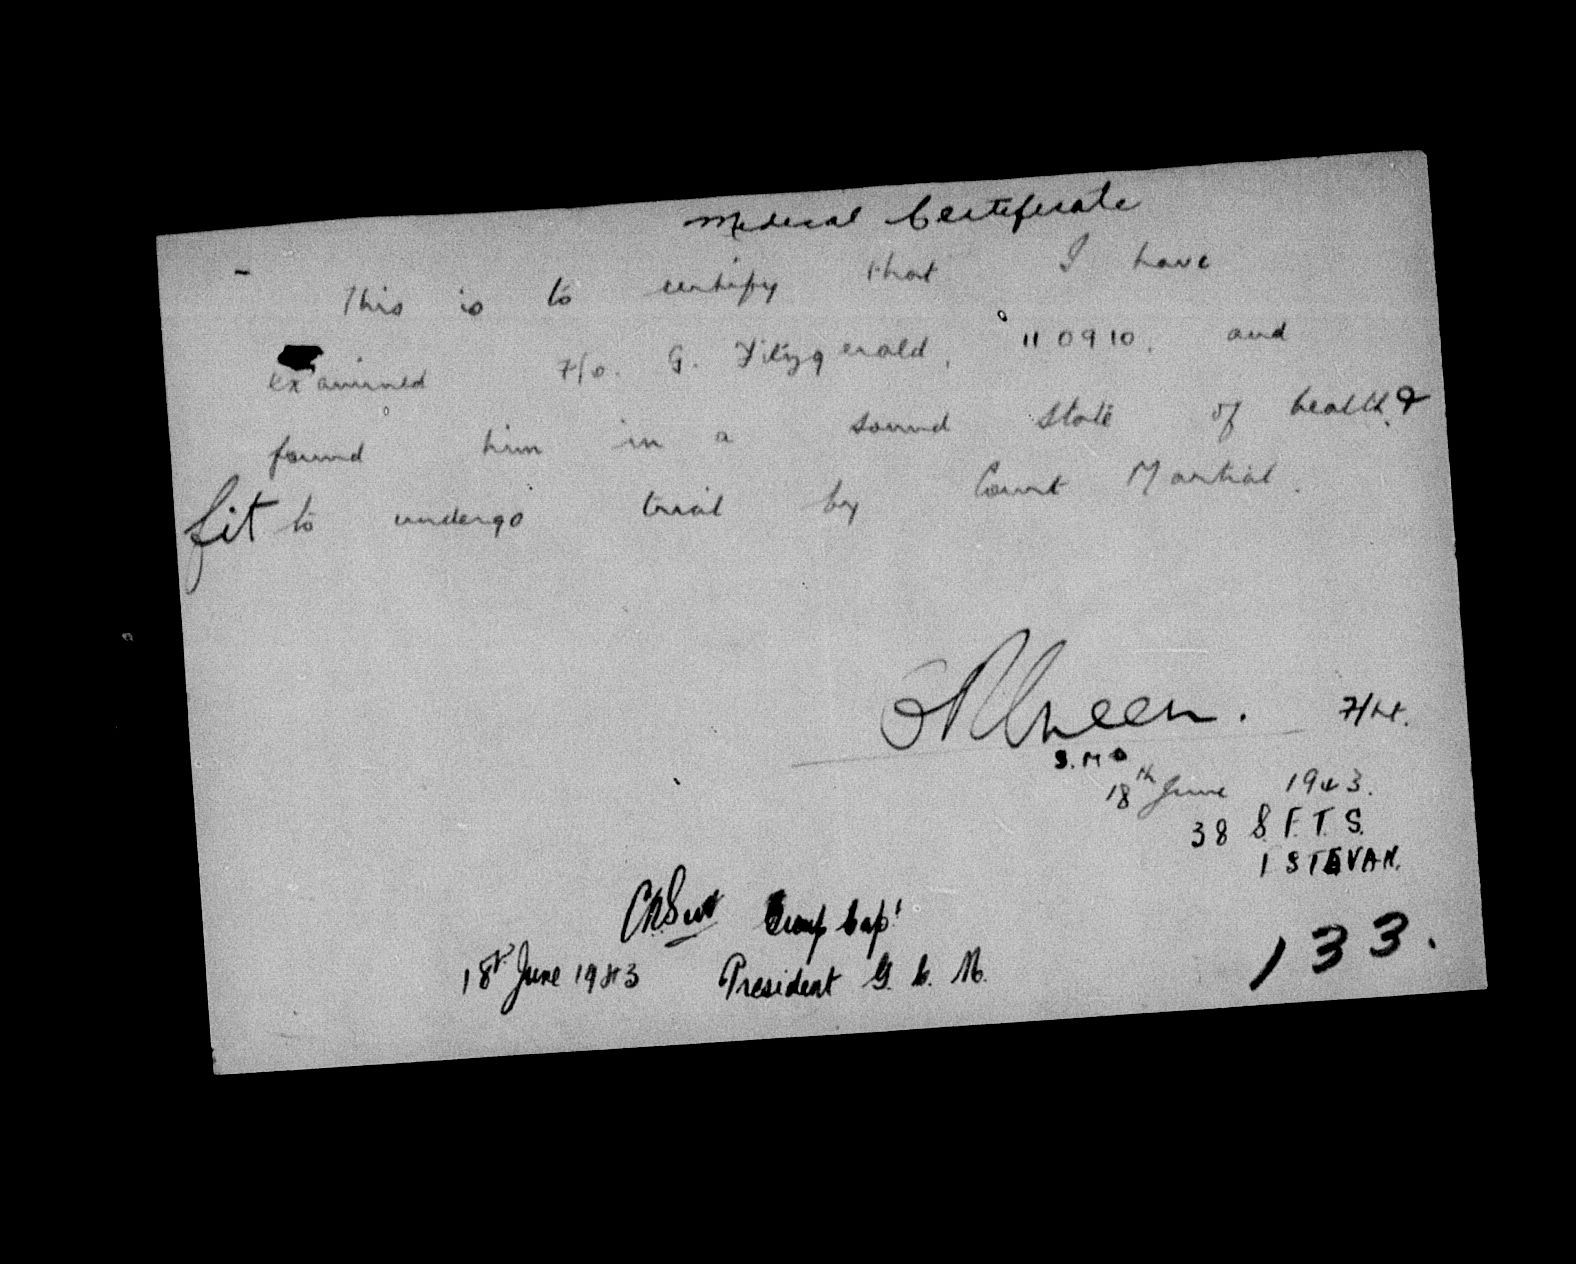 Medical Certificate
This is to certify that I have
examined F/O. G. Fitzgerald, 110910, and
found him in a sound state of health &
fit to undergo trial by Court Martial.
F/Lt.
S.M.O
18th June 1943.
38 S.F.T.S.
ESTEVAN.
Group Capt
18th June 1943 President G.C.M.
133.